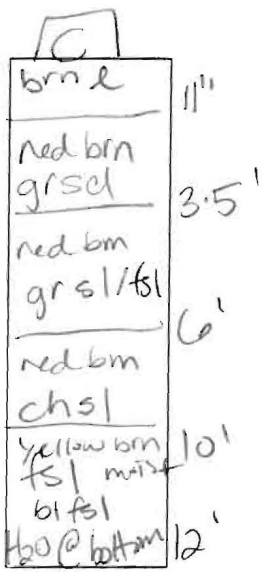 C
brn l 11"
red brn
grscl 3.5'
red brn
gr sl/fsl 6'
red brn
chsl
yellow brn 10'
fsl moist
bl fsl
H2O @ bottom 12'